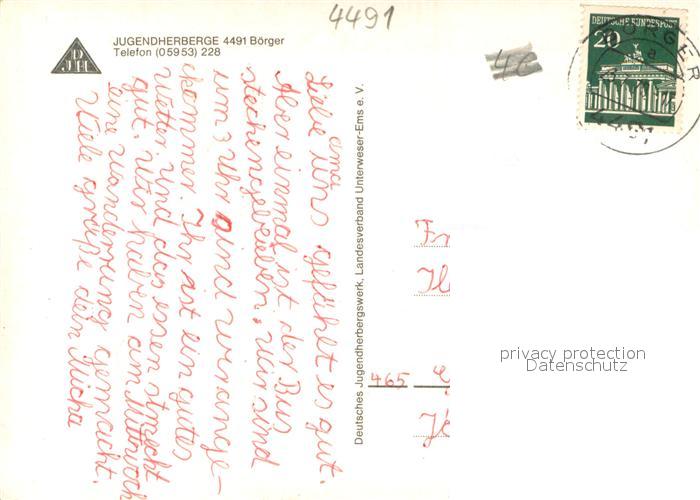 4491
JUGENDHERBERGE 4491 Börger
Telefon (05953) 228
DJH
DEUTSCHE BUNDESPOST
20
BÖRGER
4491
Liebe oma
uns gefählt es gut.
Aber einmal ist der Bus
stechengeblieben. wir sind
um 3 Uhr sind wir ange-
kommen. Ihr ist ein gutes
Wetter und das essen schmeckt
gut. Wir haben am Mittwoch
eine wanderrung gemacht.
Viele grüße dein Micha
Deutsches Jugendherbergswerk, Landesverband Unterweser-Ems e. V.
Fr
465
privacy protection
Datenschutz